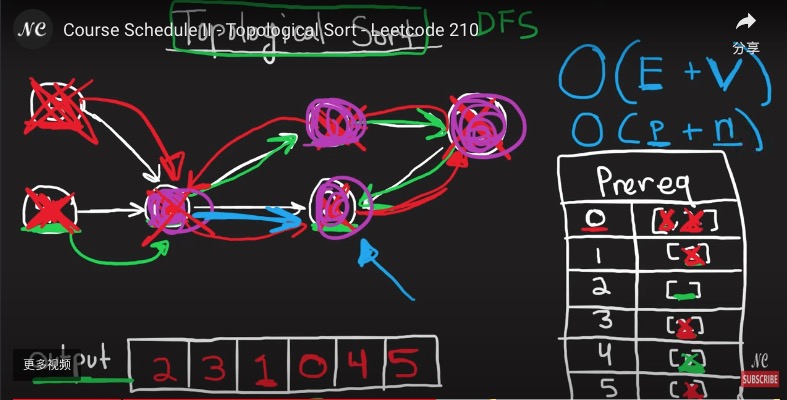 NC Course Schedule II - Topological Sort - Leetcode 210
Topological Sort DFS
分享
O(E + V)
O(p + n)
Prereq
0 [ , ]
1 [ ]
2 [ ]
3 [ ]
4 [ ]
5 [ ]
更多视频
output 2 3 1 0 4 5
NC
SUBSCRIBE